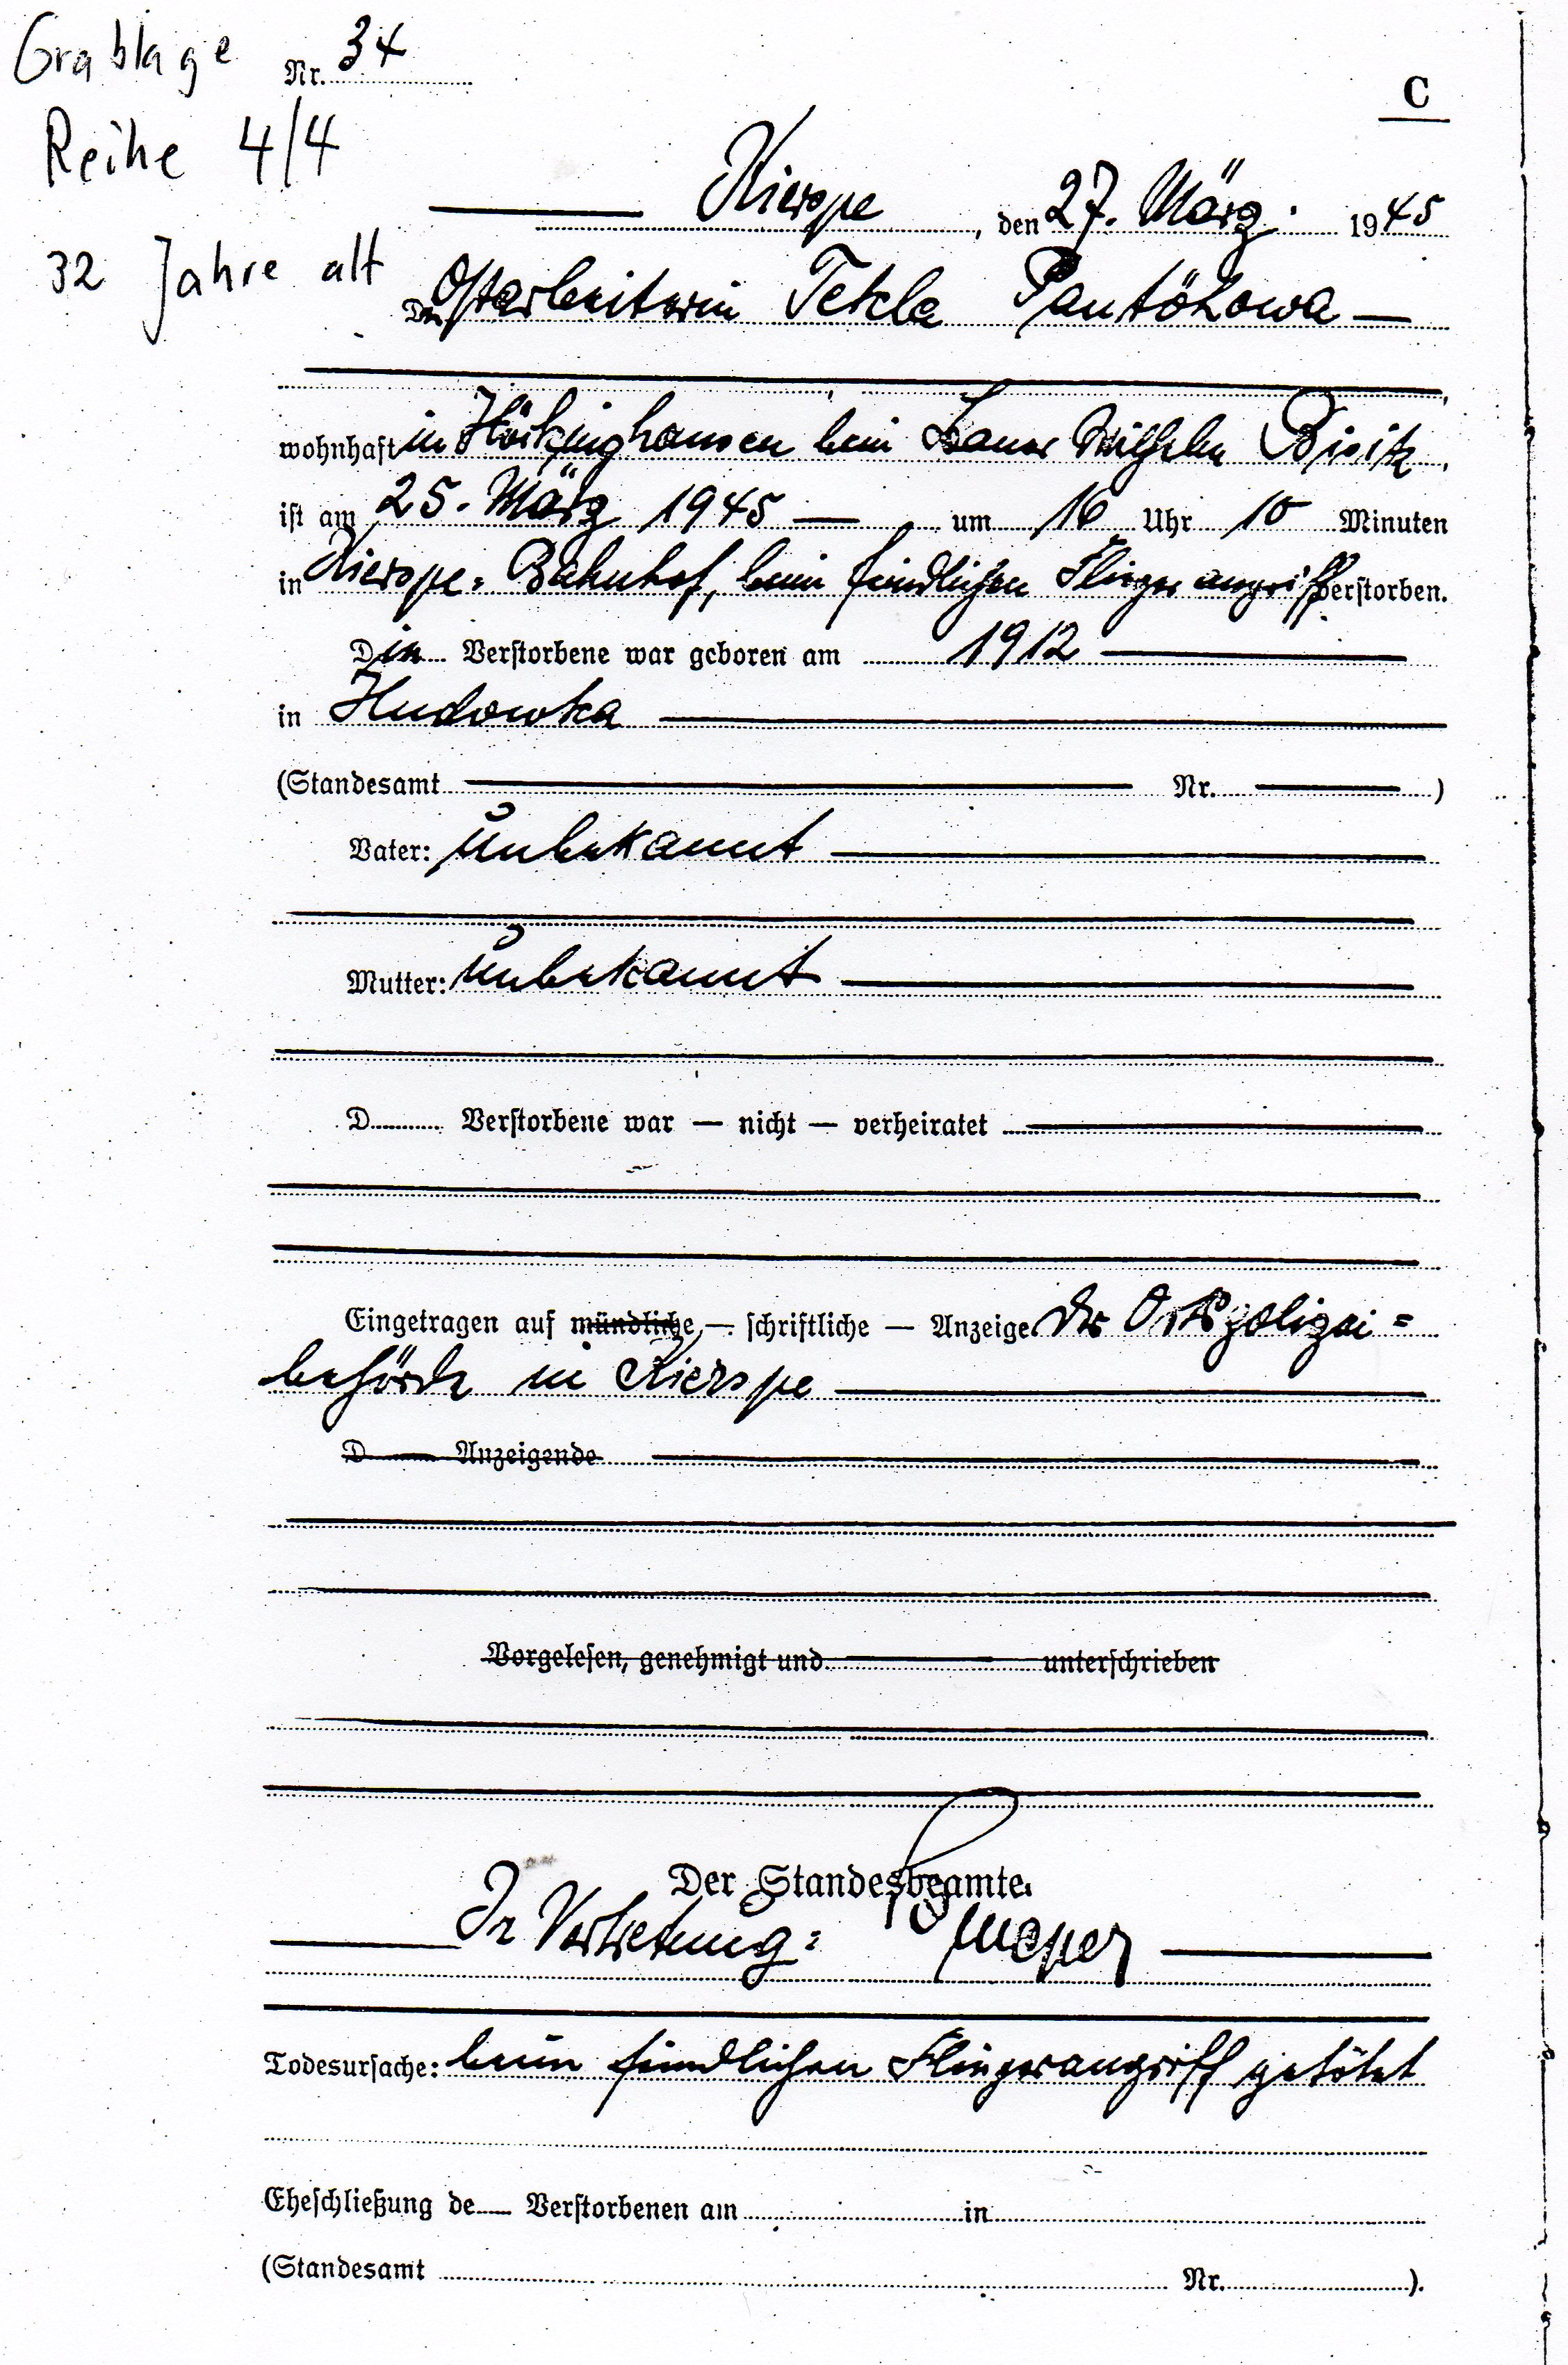 Grablage Nr. 34
C
Reihe 4/4
Kierspe, den 27. März. 1945
32 Jahre alt
Die Ostarbeiterin Tekla Pantöhowa —
wohnhaft in Höckinghausen beim Bauer Wilhelm
ist am 25. März 1945 — um 16 Uhr 10 Minuten
in Kierspe-Bahnhof, beim feindlichen Fliegerangriff verstorben.
Die Verstorbene war geboren am 1912
in Hudowka
(Standesamt Nr. )
Vater: Unbekannt
Mutter: Unbekannt
D Verstorbene war — nicht — verheiratet
Eingetragen auf mündliche — schriftliche — Anzeige der Ortspolizei=
behörde in Kierspe
D Anzeigende
Vorgelesen, genehmigt und unterschrieben
Der Standesbeamte.
In Vertretung:
Todesursache: beim feindlichen Fliegerangriff getötet
Eheschließung de Verstorbenen am in
(Standesamt Nr. ).